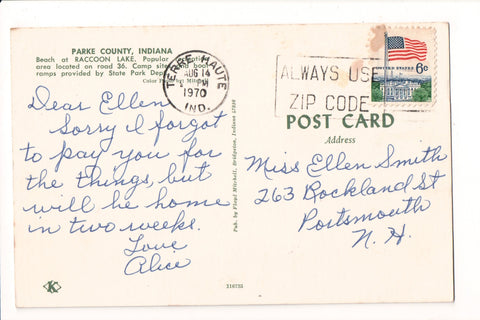 PARKE COUNTY, INDIANA
Beach at RACCOON LAKE, Popular
area located on road 36. Camp sites and boat
ramps provided by State Park Dep
Color by Mitchell
TERRE HAUTE
AUG 14
1970
IND.
ALWAYS USE
ZIP CODE
UNITED STATES
6c
POST CARD
Address
Dear Ellen
Sorry I forgot
to pay you for
the things, but
will be home
in two weeks.
Love
Alice
Pub. by Floyd Mitchell, Bridgeton, Indiana 47836
Miss Ellen Smith
263 Rockland St
Portsmouth
N. H.
K
216735